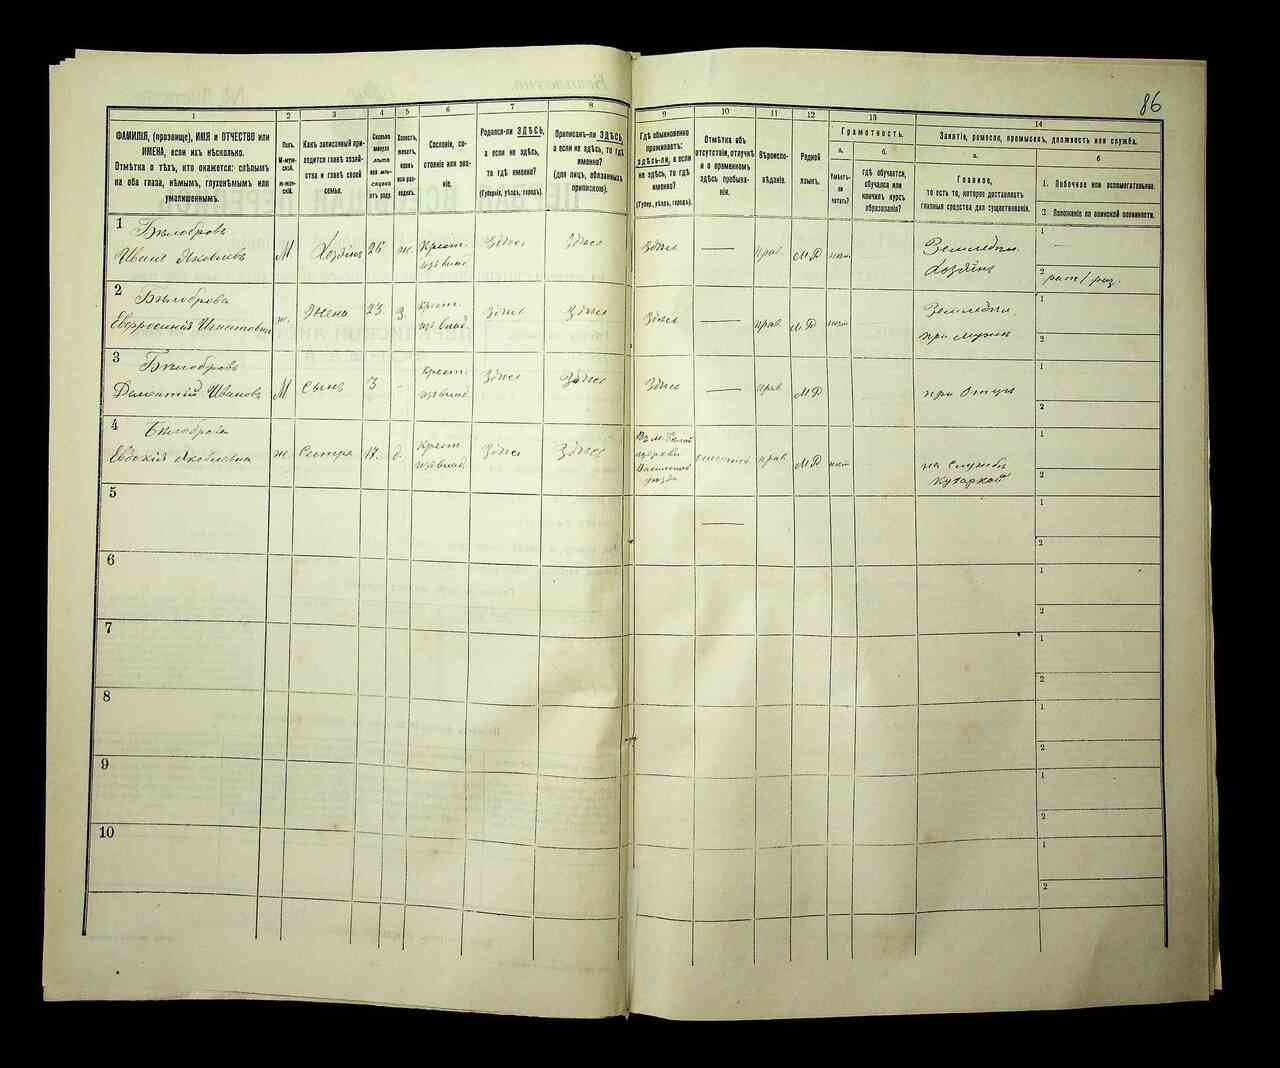 86
1
2
3
4
5
6
7
8
9
10
11
12
13
14
ФАМИЛІЯ, (прозвище), ИМЯ и ОТЧЕСТВО или
ИМЕНА, если ихъ нѣсколько.
Отмѣтка о тѣхъ, кто окажется: слѣпымъ
на оба глаза, нѣмымъ, глухонѣмымъ или
умалишеннымъ.
Полъ.
М-мужской.
Ж-женскій.
Какъ записанный приходится
главѣ хозяйства
и главѣ своей
семьи.
Сколько
минуло
лѣтъ
или мѣсяцевъ
отъ роду.
Холостъ,
женатъ,
вдовъ
или разведенъ.
Сословіе, состояніе
или званіе.
Родился-ли ЗДѢСЬ,
а если не здѣсь,
то гдѣ именно?
(Губернія, уѣздъ, городъ).
Приписанъ-ли ЗДѢСЬ,
а если не здѣсь, то гдѣ
именно?
(для лицъ, обязанныхъ
припискою).
Гдѣ обыкновенно
проживаетъ:
здѣсь-ли, а если
не здѣсь, то гдѣ
именно?
(Губер., уѣздъ, городъ).
Отмѣтка объ
отсутствіи, отлучкѣ
и о временномъ
здѣсь пребываніи.
Вѣроисповѣданіе.
Родной
языкъ.
Грамотность.
а.
б.
Умѣетъ-ли
читать?
гдѣ обучается,
обучался или
кончилъ курсъ
образованія?
Занятіе, ремесло, промыселъ, должность или служба.
а.
б
Главное,
то есть то, которое доставляетъ
главныя средства для существованія.
1. Побочное или вспомогательное.
2. Положеніе по воинской повинности.
1 Бѣлобровъ
Иванъ Яковлевъ М Хозяинъ 26 ж. Крест. Здѣсь Здѣсь Здѣсь — прав. М.Р нет Земледѣл.
Хозяинъ
1 —
2
2 Бѣлоброва
Евфросинія Игнатовна ж. Жена 23 З. Крест. Здѣсь Здѣсь Здѣсь — прав М.Р нет Земледѣл.
при мужѣ
1
2
3 Бѣлобровъ
Дементій Ивановъ М Сынъ 3 - Крест. Здѣсь Здѣсь Здѣсь — прав М.Р при Отцѣ
1
2
4 Бѣлоброва
Евдокія Яковлевна ж. Сестра 17. д. Крест. Здѣсь Здѣсь
уѣзда
прав М.Р нет на службѣ
Кухаркой
1
2
5 —
1
2
6
1
2
7
1
2
8
1
2
9
1
2
10
1
2